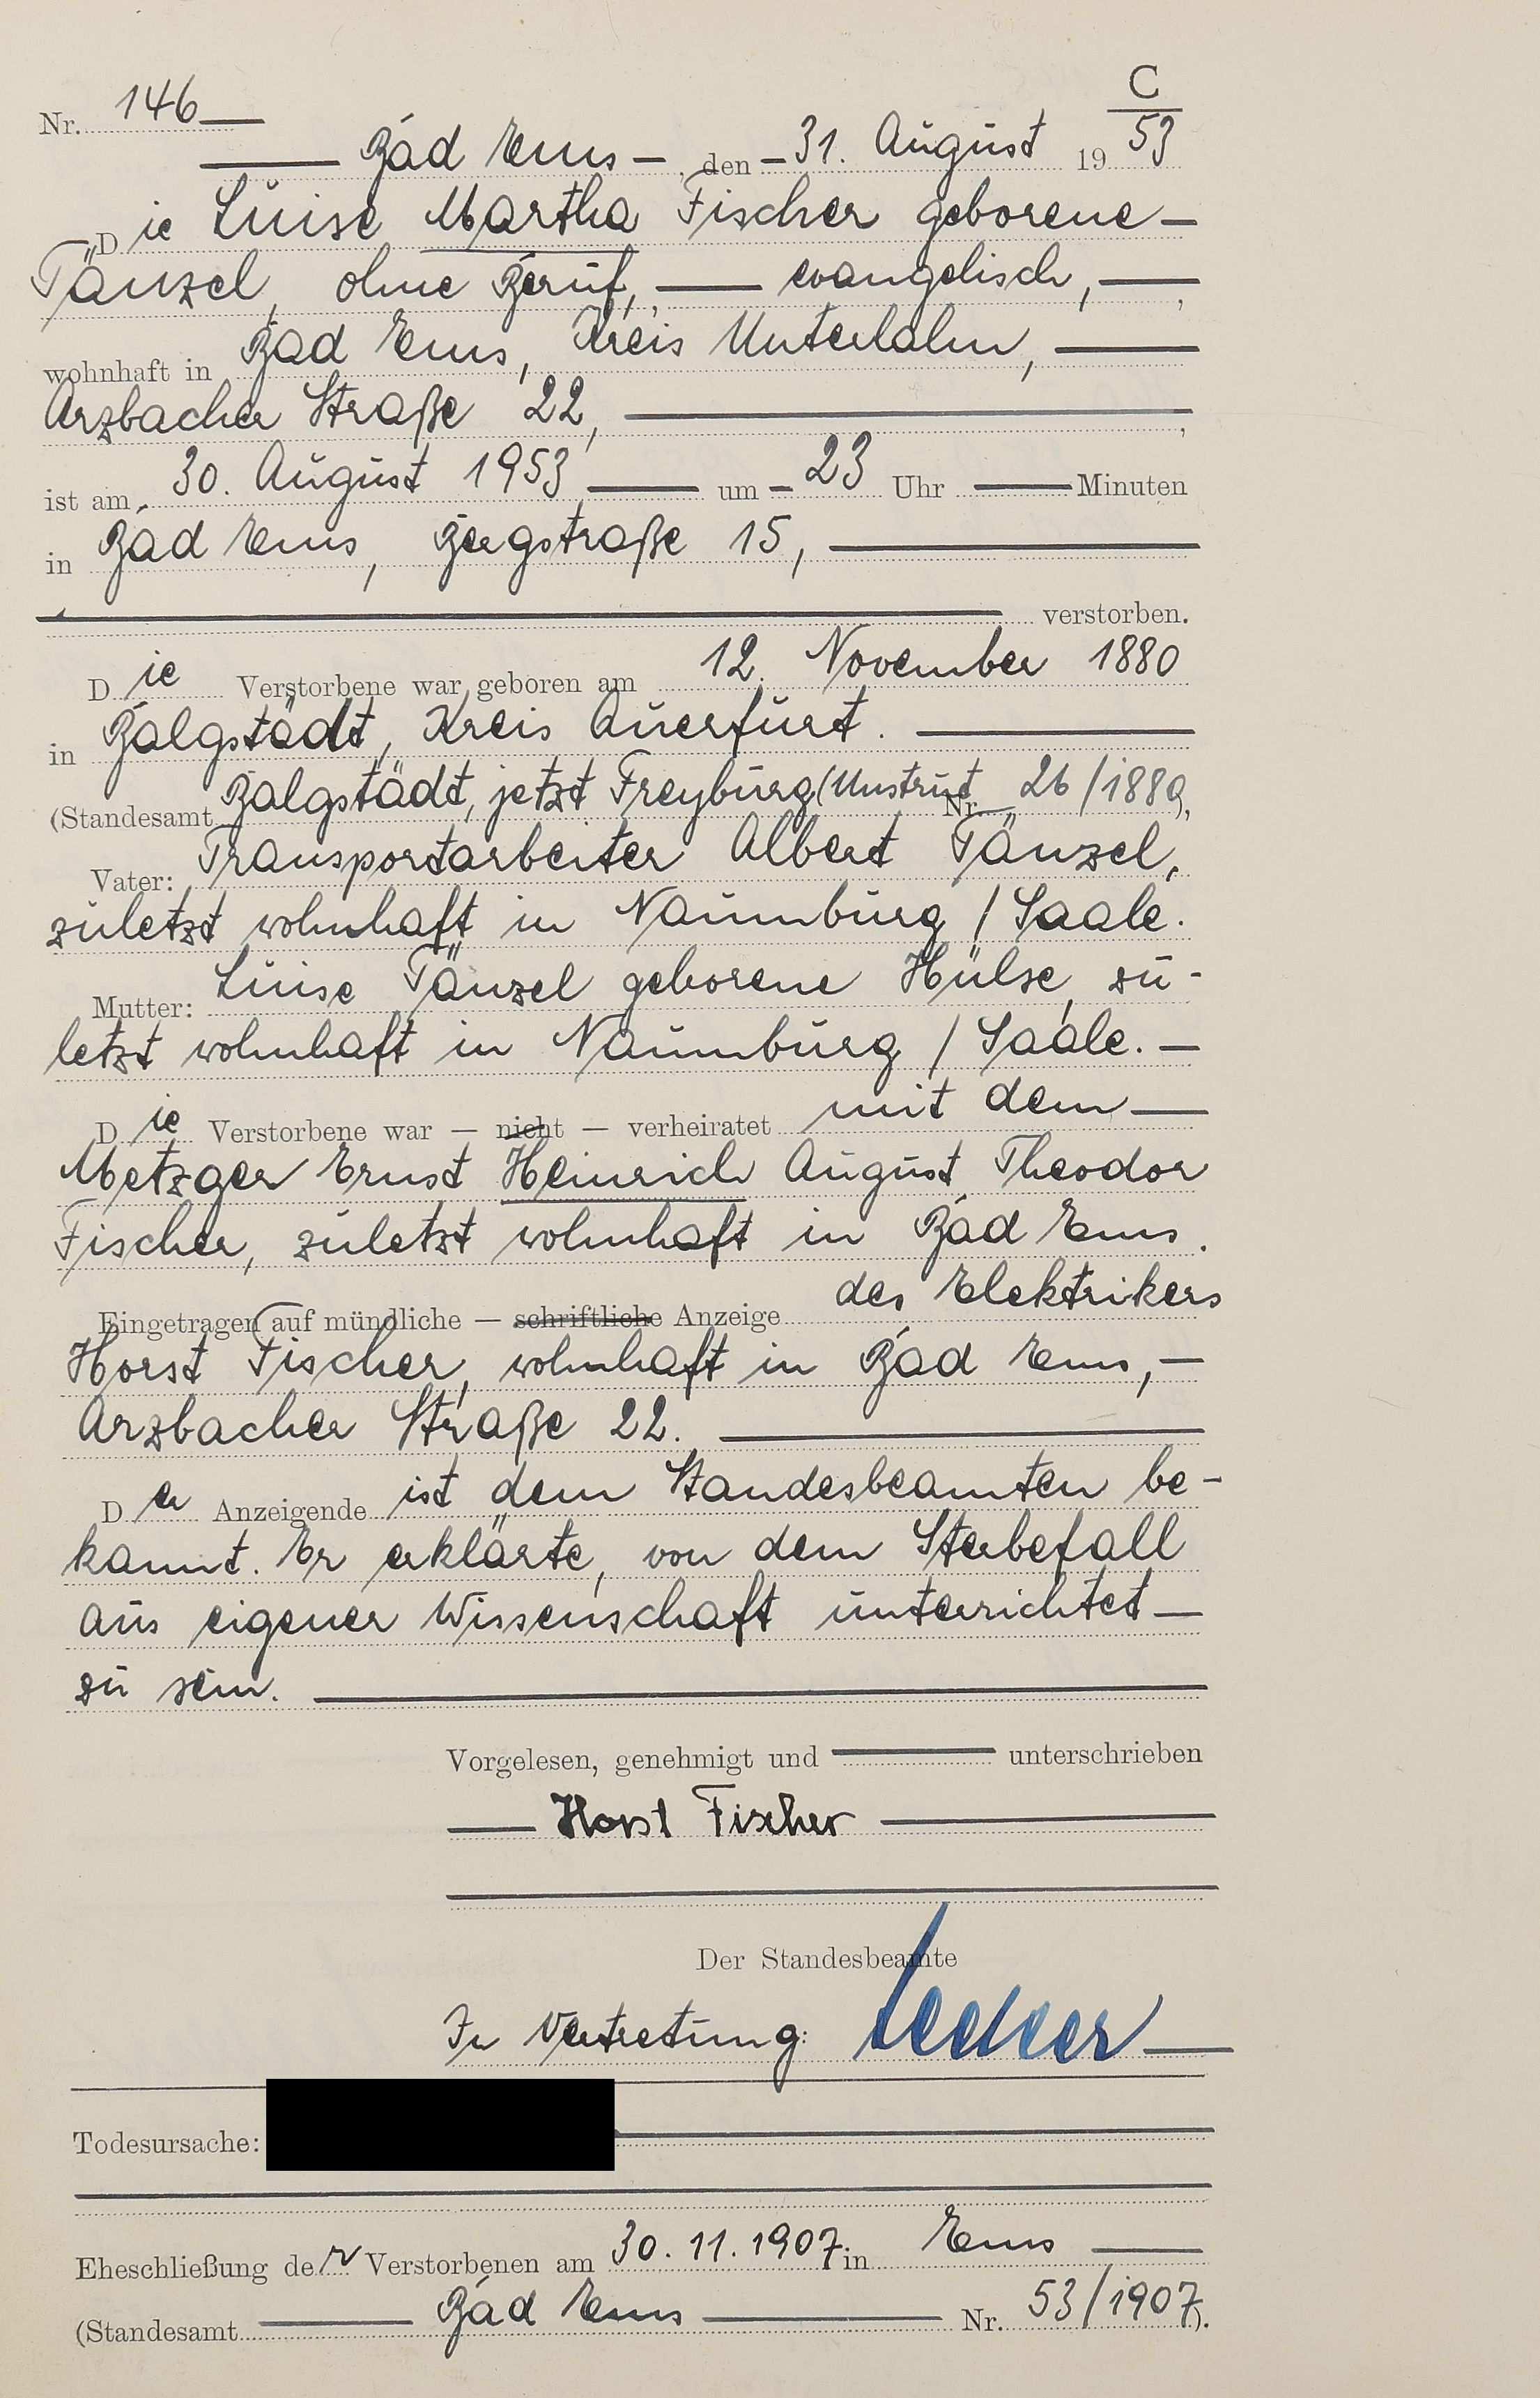 C
Nr. 146
Bad Ems, den 31. August 1953
Die Luise Martha Fischer geborene
Tänzel, ohne Beruf, evangelisch,
wohnhaft in Bad Ems, Kreis Unterlahn,
Arzbacher Straße 22,
ist am 30. August 1953 um 23 Uhr Minuten
in Bad Ems, Bergstraße 15,
verstorben.
Die Verstorbene war geboren am 12. November 1880
in Balgstädt, Kreis Querfurt.
(Standesamt Balgstädt, jetzt Freyburg/Unstrut Nr. 26/1880),
Vater: Transportarbeiter Albert Tänzel,
zuletzt wohnhaft in Naumburg / Saale.
Mutter: Luise Tänzel geborene Hülse, zu-
letzt wohnhaft in Naumburg / Saale.
Die Verstorbene war — nicht — verheiratet mit dem
Metzger Ernst Heinrich August Theodor
Fischer, zuletzt wohnhaft in Bad Ems.
Eingetragen auf mündliche — schriftliche Anzeige des Elektrikers
Horst Fischer, wohnhaft in Bad Ems,
Arzbacher Straße 22.
Der Anzeigende ist dem Standesbeamten be-
kannt. Er erklärte, von dem Sterbefall
aus eigener Wissenschaft unterrichtet
zu sein.
Vorgelesen, genehmigt und unterschrieben
Horst Fischer
Der Standesbeamte
In Vertretung:
Todesursache:
Eheschließung der Verstorbenen am 30.11.1907 in Ems
(Standesamt Bad Ems Nr. 53/1907).